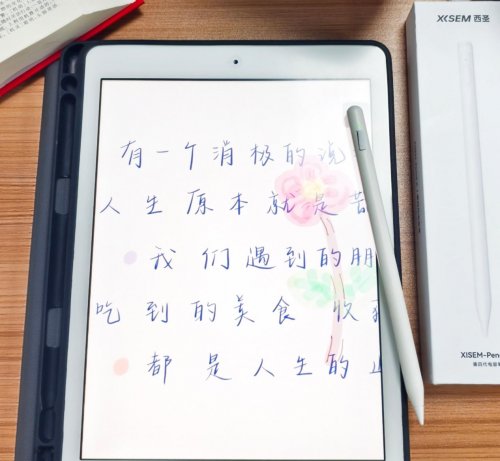 XISEM 西圣
有一个消极的说
人生原本就是苦
我们遇到的朋
吃到的美食 收
都是人生的
XISEM-Pen